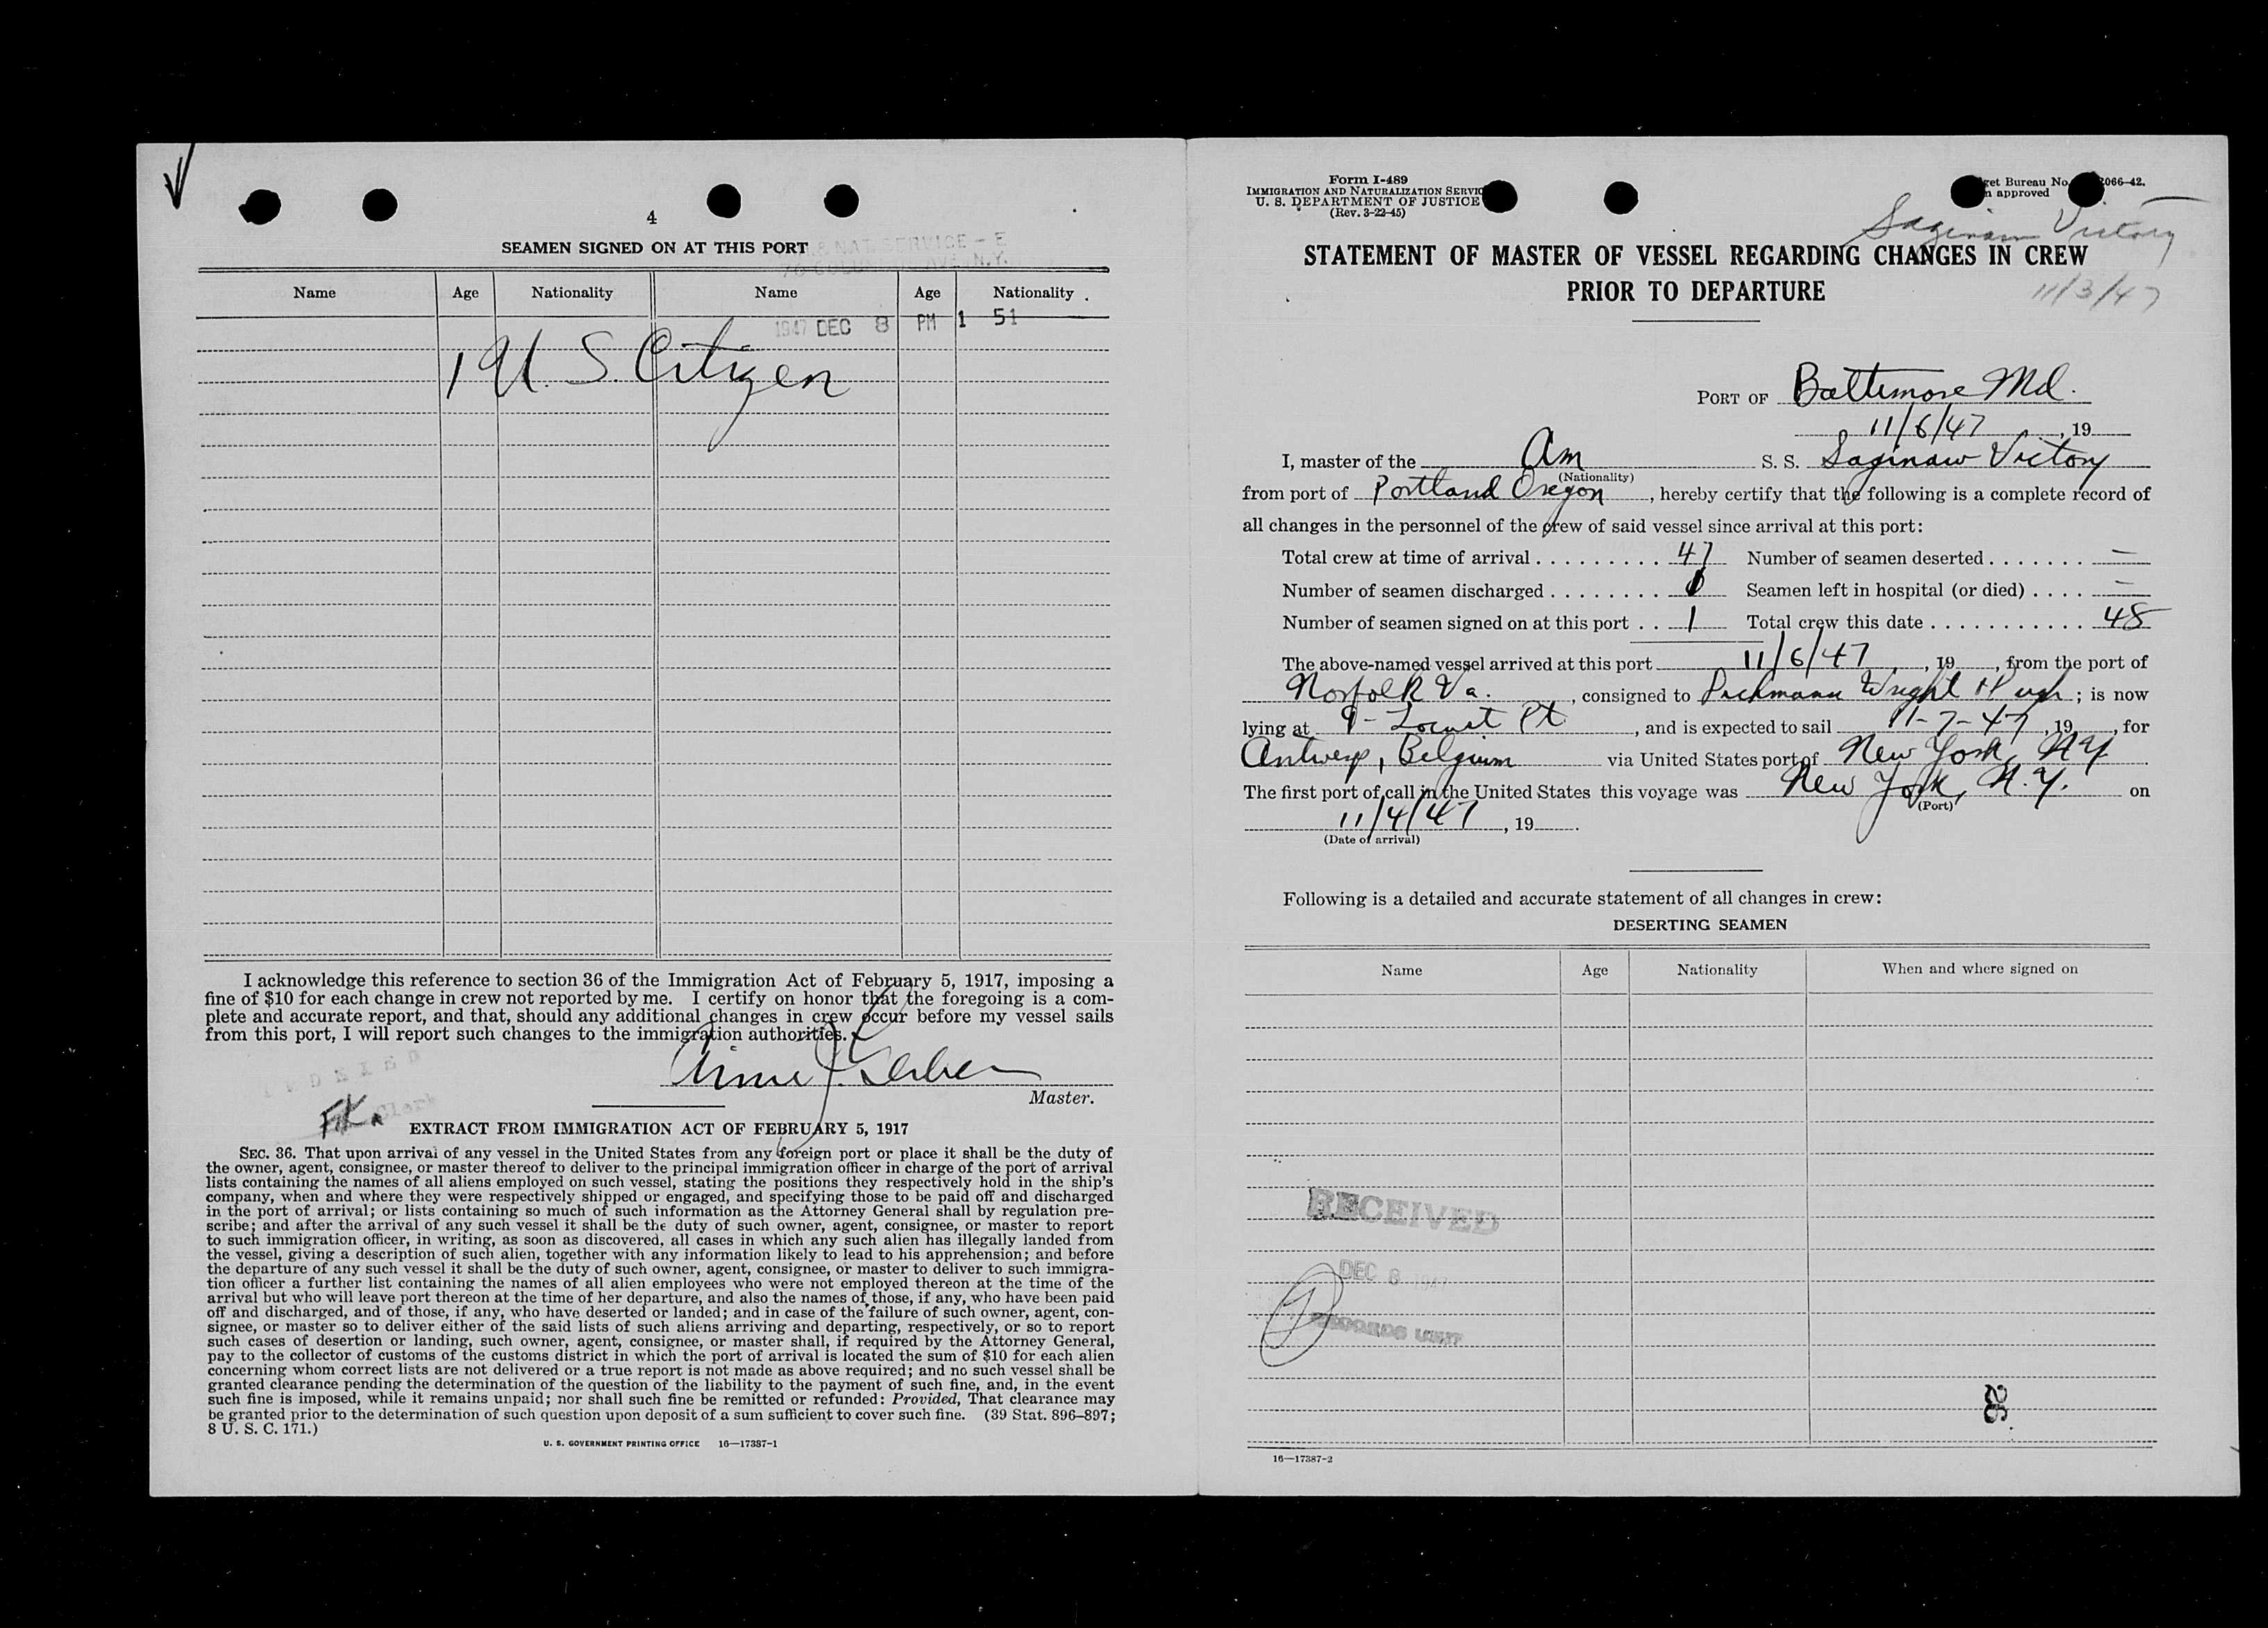 4
SEAMEN SIGNED ON AT THIS PORT
& NAT. SERVICE – E
70 COLUMBUS AVE. N.Y.
Name Age Nationality Name Age Nationality
1947 DEC 8 PM 1 51
1 U.S. Citizen
I acknowledge this reference to section 36 of the Immigration Act of February 5, 1917, imposing a
fine of $10 for each change in crew not reported by me. I certify on honor that the foregoing is a com-
plete and accurate report, and that, should any additional changes in crew occur before my vessel sails
from this port, I will report such changes to the immigration authorities.
Master.
INDEXED
Clerk
EXTRACT FROM IMMIGRATION ACT OF FEBRUARY 5, 1917
SEC. 36. That upon arrival of any vessel in the United States from any foreign port or place it shall be the duty of
the owner, agent, consignee, or master thereof to deliver to the principal immigration officer in charge of the port of arrival
lists containing the names of all aliens employed on such vessel, stating the positions they respectively hold in the ship's
company, when and where they were respectively shipped or engaged, and specifying those to be paid off and discharged
in the port of arrival; or lists containing so much of such information as the Attorney General shall by regulation pre-
scribe; and after the arrival of any such vessel it shall be the duty of such owner, agent, consignee, or master to report
to such immigration officer, in writing, as soon as discovered, all cases in which any such alien has illegally landed from
the vessel, giving a description of such alien, together with any information likely to lead to his apprehension; and before
the departure of any such vessel it shall be the duty of such owner, agent, consignee, or master to deliver to such immigra-
tion officer a further list containing the names of all alien employees who were not employed thereon at the time of the
arrival but who will leave port thereon at the time of her departure, and also the names of those, if any, who have been paid
off and discharged, and of those, if any, who have deserted or landed; and in case of the failure of such owner, agent, con-
signee, or master so to deliver either of the said lists of such aliens arriving and departing, respectively, or so to report
such cases of desertion or landing, such owner, agent, consignee, or master shall, if required by the Attorney General,
pay to the collector of customs of the customs district in which the port of arrival is located the sum of $10 for each alien
concerning whom correct lists are not delivered or a true report is not made as above required; and no such vessel shall be
granted clearance pending the determination of the question of the liability to the payment of such fine, and, in the event
such fine is imposed, while it remains unpaid; nor shall such fine be remitted or refunded: Provided, That clearance may
be granted prior to the determination of such question upon deposit of a sum sufficient to cover such fine. (39 Stat. 896–897;
8 U. S. C. 171.)
U. S. GOVERNMENT PRINTING OFFICE 16—17387-1
Form I-489
IMMIGRATION AND NATURALIZATION SERVIC
U. S. DEPARTMENT OF JUSTICE
(Rev. 3-22-45)
get Bureau No. 066-42.
approved
Saginaw Victory
STATEMENT OF MASTER OF VESSEL REGARDING CHANGES IN CREW
PRIOR TO DEPARTURE
11/3/47
PORT OF Baltimore Md.
11/6/47, 19
I, master of the Am S. S. Saginaw Victory
(Nationality)
from port of Portland Oregon, hereby certify that the following is a complete record of
all changes in the personnel of the crew of said vessel since arrival at this port:
Total crew at time of arrival 47 Number of seamen deserted —
Number of seamen discharged Seamen left in hospital (or died) —
Number of seamen signed on at this port 1 Total crew this date 48
The above-named vessel arrived at this port 11/6/47, 19, from the port of
Norfolk Va., consigned to Wright & Pugh; is now
lying at 9 - Locust Pt, and is expected to sail 11-7-47, 19, for
Antwerp, Belgium via United States port of New York, NY
The first port of call in the United States this voyage was New York, N.Y. on
(Port)
11/4/47, 19.
(Date of arrival)
Following is a detailed and accurate statement of all changes in crew:
DESERTING SEAMEN
Name Age Nationality When and where signed on
RECEIVED
DEC 8 1947
RECORDS UNIT
26
16—17387-2